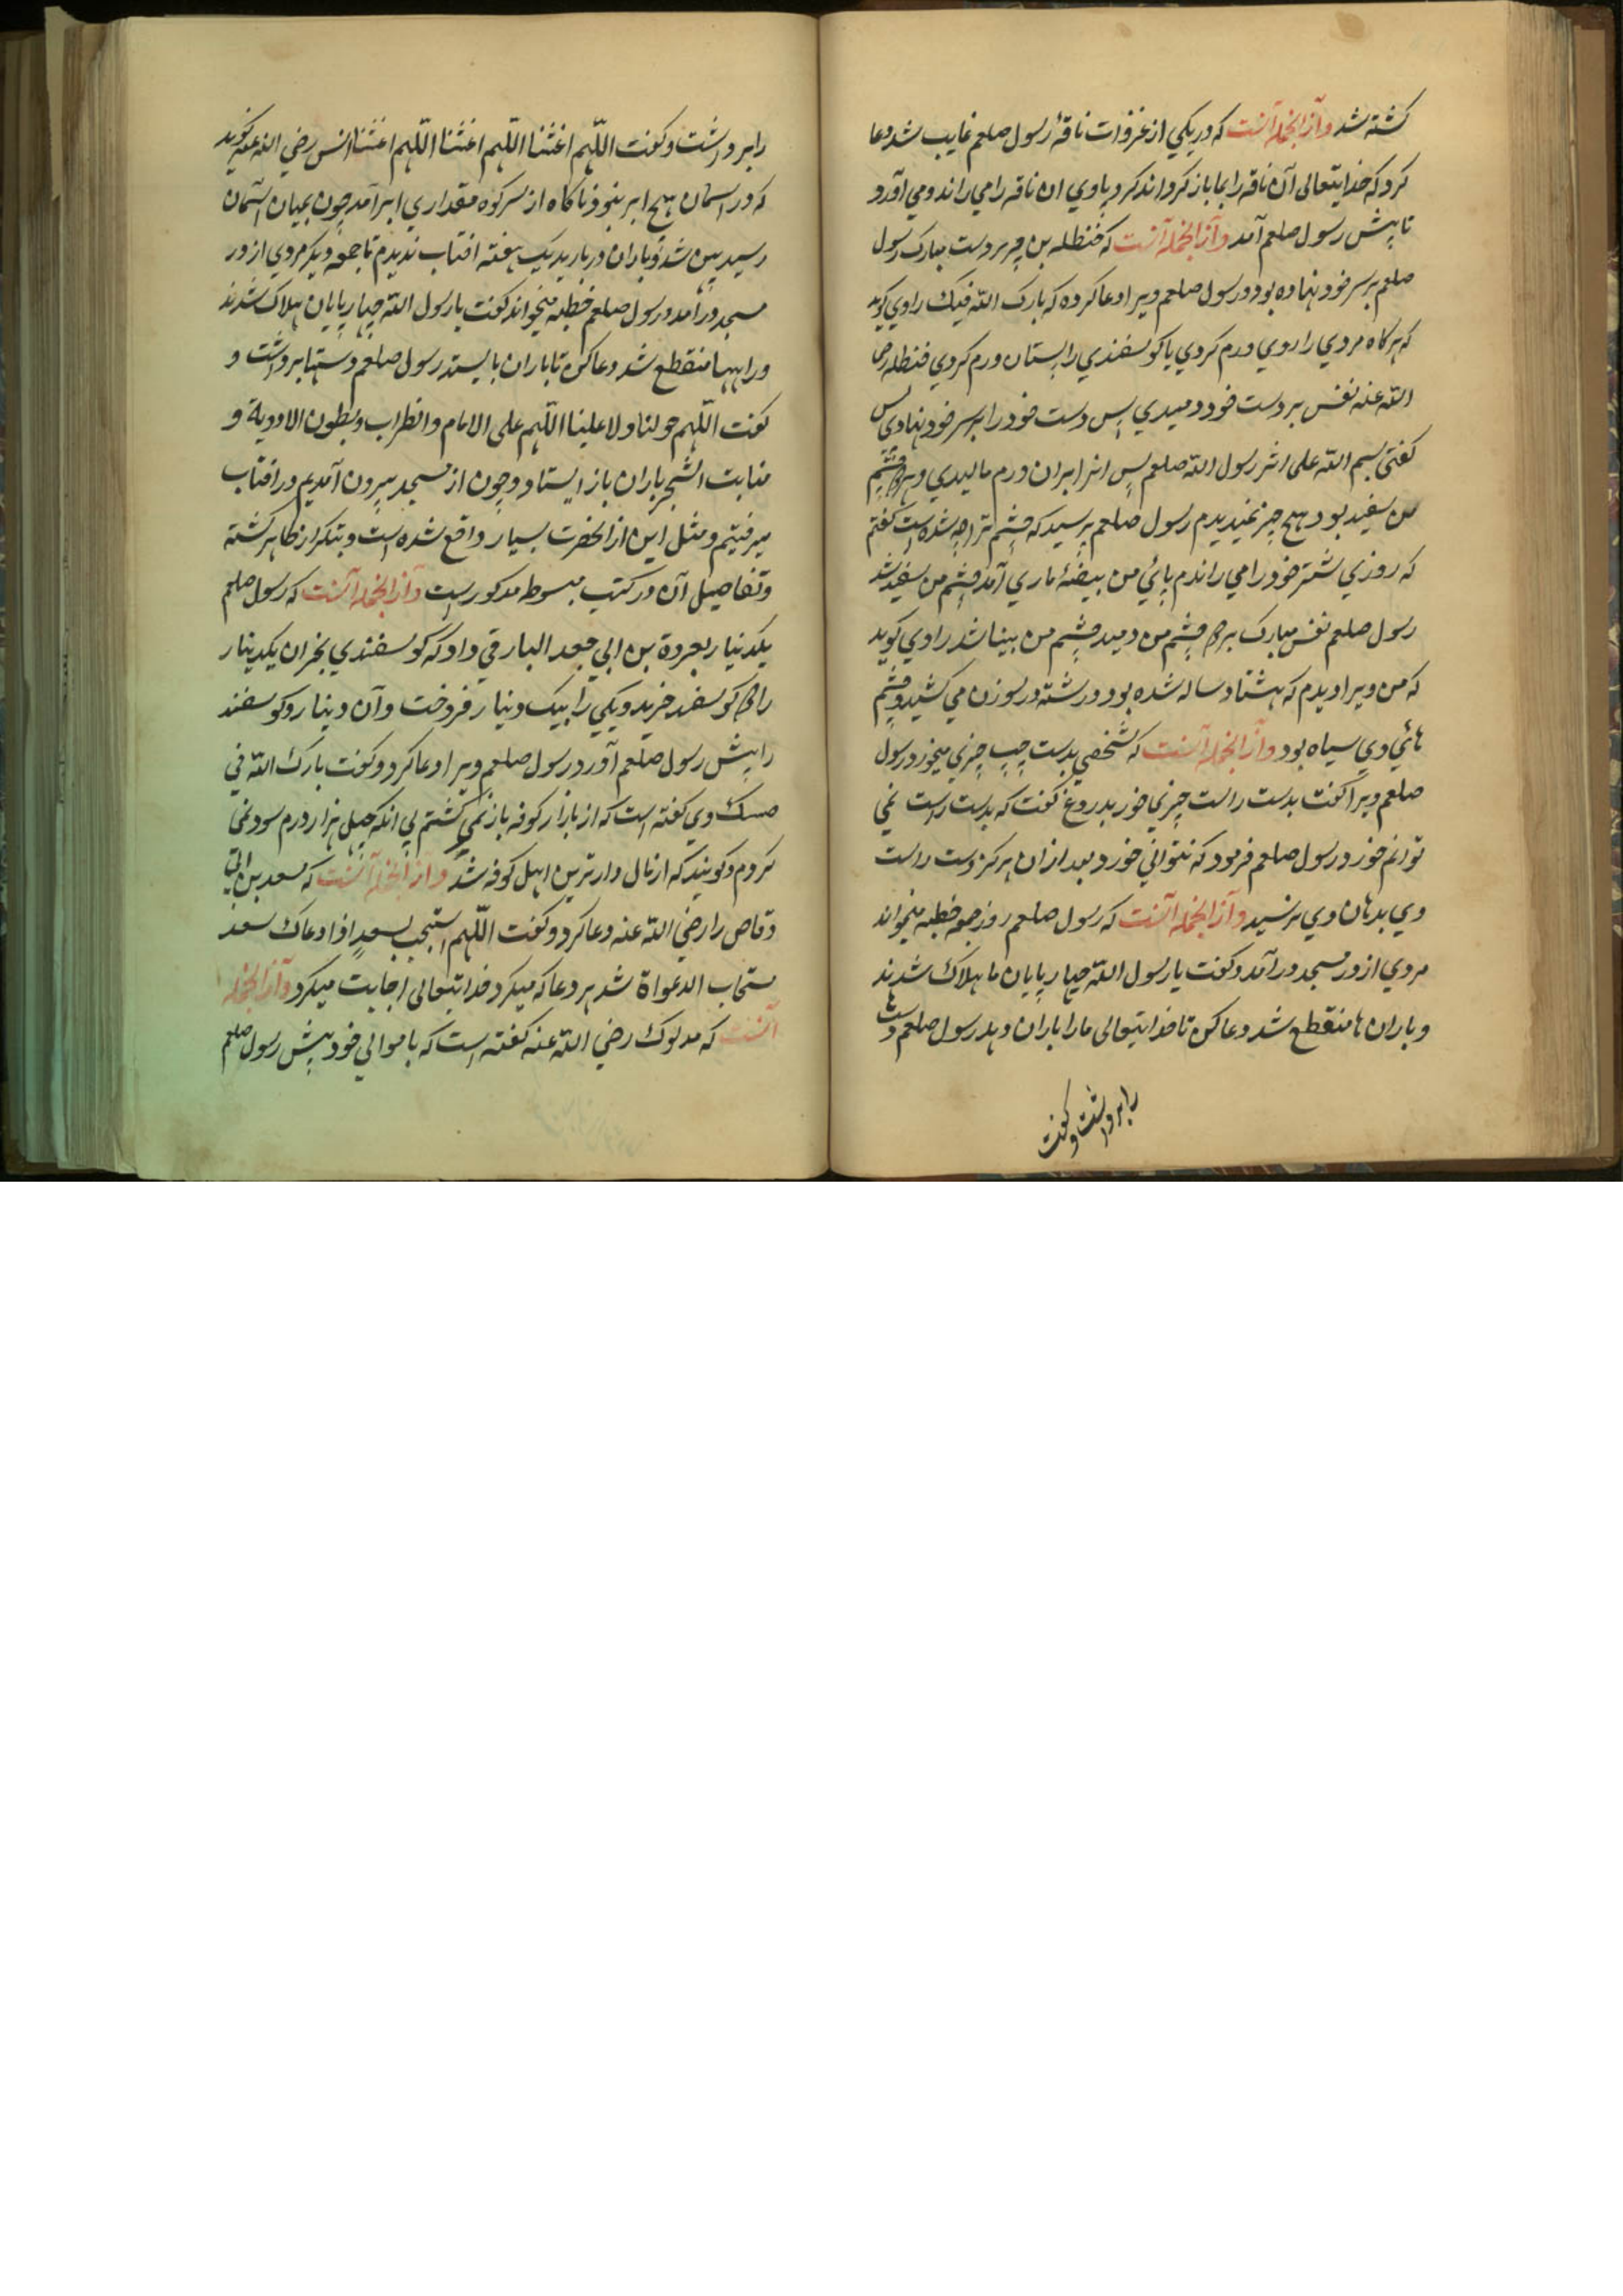 کشته شد وازانجمله آنست که در یکی از غزوات ناقهٔ رسول صلعم غایب شد دعا
کرد که خدایتعالی آن ناقه را بما باز کرداند کرد بادی ان ناقه را می راند و می آورد
تا پیش رسول صلعم آمد وازانجمله آنست که حنظله بن دست مبارک رسول
صلعم بر سر خود نهاده بود و رسول صلعم ویرا دعا کرده که بارک الله فیک راوی کوید
که هرکاه مردی را روی ورم کردی یا کوسفندی را پستان ورم کردی حنظله رضی
الله عنه نفس بر دست خود دمیدی پس دست خود را بر سر خود نهادی پس
کفتی بسم الله علی اثر رسول الله صلعم پس انرا بران ورم مالیدی و هر دو چشم
من سفید بود هیچ چیز نمیدیدم رسول صلعم پرسید که چشم ترا چه شده است کفتم
که روزی شتر خود را می راندم پائی من بیضهٔ ماری آمد چشم من سفید شد
رسول صلعم نفس مبارک بر چشم من دمید چشم من بینا شد راوی کوید
که من ویرا دیدم که هشتاد ساله شده بود و رشته در سوزن می کشید و چشم
هائی وی سیاه بود وازانجمله آنست که شخصی بدست چپ چیزی میخورد رسول
صلعم ویرا کفت بدست راست چیزی خور بدروغ کفت که بدست راست نمی
توانم خورد رسول صلعم فرمود که نتوانی خورد بعد ازان هرکز دست راست
وی بدهان وی نرسید وازانجمله آنست که رسول صلعم روز جمعه خطبه میخواند
مردی از در مسجد درآمد و کفت یا رسول الله چهارپایان ما هلاک شدند
و باران ها منقطع شد دعا کن تا خدایتعالی ما را باران دهد رسول صلعم دستها
را برداشت و کفت
را برداشت و کفت اللهم اغثنا اللهم اغثنا اللهم اغثنا انس رضی الله عنه کوید
که در اسمان هیچ ابر نبود ناکاه از سر کوه مقداری ابر آمد چون بمیان آسمان
رسید پهن شد و باران در بارید یک هفته افتاب ندیدم تا جمعه دیکر مردی از در
مسجد درآمد و رسول صلعم خطبه میخواند کفت یا رسول الله چهارپایان هلاک شدند
و راهها منقطع شد دعا کن تا باران بایستد رسول صلعم دستها برداشت و
کفت اللهم حولنا و لا علینا اللهم علی الاکام و الظراب و بطون الاودیة و
منابت الشجر باران باز ایستاد و چون از مسجد بیرون آمدیم در افتاب
میرفتیم و مثل این از انحضرت بسیار واقع شده است و بتکرار ظاهر کشته
و تفاصیل آن در کتب مبسوط مذکور است وازانجمله آنست که رسول صلعم
یکدینار بعروة بن ابی جعد البارقی داد که کوسفندی بخر ان یکدینار
را دو کوسفند خرید و یکی را بیک دینار فروخت و آن دینار و کوسفند
را پیش رسول صلعم آورد رسول صلعم ویرا دعا کرد و کفت بارک الله فی
وی کفته است که از بازار کوفه باز نمی کشتم بی انکه چهل هزار درم سود نمی
کردم و کویند که از مال دارترین اهل کوفه شد وازانجمله آنست که سعد بن ابی
وقاص را رضی الله عنه دعا کرد و کفت اللهم استجب لسعد اذا دعاک سعد
مستجاب الدعواة شد هر دعا که میکرد خدایتعالی اجابت میکرد وازانجمله
آنست که مدلوک رضی الله عنه کفته است که با موالی خود پیش رسول صلعم